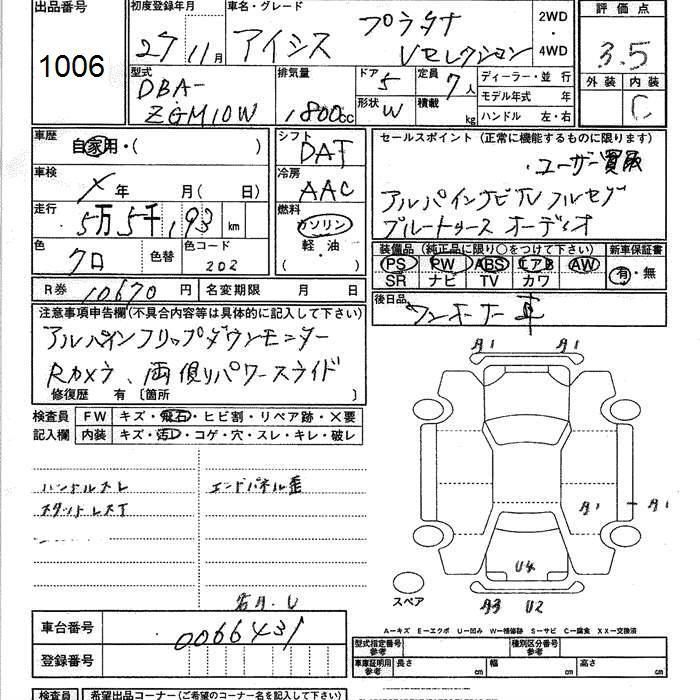 出品番号 初度登録年月 車名・グレード 評価点
1006 27 11月 アイシス プラタナ Vセレクション 2WD・4WD 3.5
型式 排気量 ドア 5 定員 7人 ディーラー・並行 外装 内装
DBA-ZGM10W 1800cc 形状 W 積載 kg モデル年式 年 C
ハンドル 左・右
車歴 自家用・( ) シフト DAT セールスポイント (正常に機能するものに限ります)
・ユーザー買取
車検 X年 月( 日) 冷房 AAC アルパインナビTVフルセグ
走行 5万5千,193 km 燃料 ガソリン ブルートゥース オーディオ
軽・油 ( )
色 クロ 色替 色コード 202 装備品 (純正品に限り○をつけて下さい) 新車保証書
PS PW ABS エアB AW 有・無
SR ナビ TV カワ
R券 10670円 名変期限 月 日 後日品 ワンオーナー車
注意事項申告欄(不具合内容等は具体的に記入して下さい)
アルパインフリップダウンモニター
Rカメラ、両側パワースライド
修復歴 有 〔箇所 〕
検査員 FW キズ・飛石・ヒビ割・リペア跡・X要
記入欄 内装 キズ・汚レ・コゲ・穴・スレ・キレ・破レ
A1 A1
ハンドルスレ エンドパネル歪
スタッドレスT
A1 A1
U4
スペア A3 U2
車台番号 0066431
A―キズ E―エクボ U―凹み W―補修跡 S―サビ C―腐食 XX―交換済
登録番号 型式指定番号 参考 種別区分番号 参考
車庫証明用 参考 長さ cm 幅 cm 高さ cm
検査員 希望出品コーナー(ご希望のコーナー名を記入して下さい)